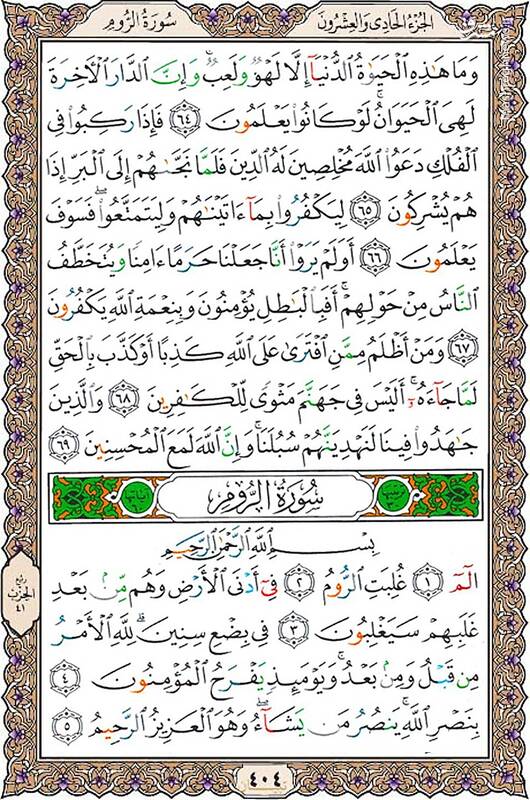 الجزء الحادي والعشرون
سورة الروم
وَمَا هَٰذِهِ ٱلْحَيَوٰةُ ٱلدُّنْيَآ إِلَّا لَهْوٌ وَلَعِبٌ ۚ وَإِنَّ ٱلدَّارَ ٱلْأَخِرَةَ
لَهِىَ ٱلْحَيَوَانُ ۚ لَوْ كَانُوا۟ يَعْلَمُونَ ٦٤ فَإِذَا رَكِبُوا۟ فِى
ٱلْفُلْكِ دَعَوُا۟ ٱللَّهَ مُخْلِصِينَ لَهُ ٱلدِّينَ فَلَمَّا نَجَّىٰهُمْ إِلَى ٱلْبَرِّ إِذَا
هُمْ يُشْرِكُونَ ٦٥ لِيَكْفُرُوا۟ بِمَآ ءَاتَيْنَٰهُمْ وَلِيَتَمَتَّعُوا۟ ۖ فَسَوْفَ
يَعْلَمُونَ ٦٦ أَوَلَمْ يَرَوْا۟ أَنَّا جَعَلْنَا حَرَمًا ءَامِنًا وَيُتَخَطَّفُ
ٱلنَّاسُ مِنْ حَوْلِهِمْ ۚ أَفَبِٱلْبَٰطِلِ يُؤْمِنُونَ وَبِنِعْمَةِ ٱللَّهِ يَكْفُرُونَ
٦٧ وَمَنْ أَظْلَمُ مِمَّنِ ٱفْتَرَىٰ عَلَى ٱللَّهِ كَذِبًا أَوْ كَذَّبَ بِٱلْحَقِّ
لَمَّا جَآءَهُۥٓ ۚ أَلَيْسَ فِى جَهَنَّمَ مَثْوًى لِّلْكَٰفِرِينَ ٦٨ وَٱلَّذِينَ
جَٰهَدُوا۟ فِينَا لَنَهْدِيَنَّهُمْ سُبُلَنَا ۚ وَإِنَّ ٱللَّهَ لَمَعَ ٱلْمُحْسِنِينَ ٦٩
سُورَةُ ٱلرُّومِ
بِسْمِ ٱللَّهِ ٱلرَّحْمَٰنِ ٱلرَّحِيمِ
الٓمٓ ١ غُلِبَتِ ٱلرُّومُ ٢ فِىٓ أَدْنَى ٱلْأَرْضِ وَهُم مِّنۢ بَعْدِ
غَلَبِهِمْ سَيَغْلِبُونَ ٣ فِى بِضْعِ سِنِينَ ۗ لِلَّهِ ٱلْأَمْرُ
مِن قَبْلُ وَمِنۢ بَعْدُ ۚ وَيَوْمَئِذٍ يَفْرَحُ ٱلْمُؤْمِنُونَ ٤
بِنَصْرِ ٱللَّهِ ۚ يَنصُرُ مَن يَشَآءُ ۖ وَهُوَ ٱلْعَزِيزُ ٱلرَّحِيمُ ٥
ربع
الحزب
٤١
٤٠٤